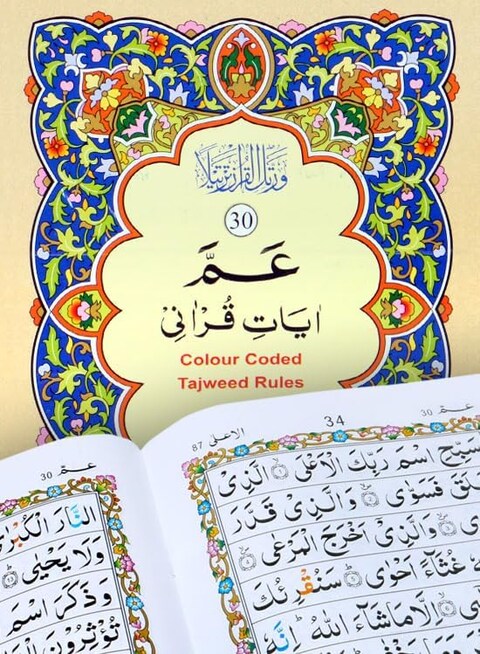 ورتل القرآن ترتيلا
30
عَمَّ
اٰيَاتِ قُرْاٰنِىْ
Colour Coded
Tajweed Rules
عمّ 30
34
الاعلىٰ 87
سَبِّحِ اسْمَ رَبِّكَ الْاَعْلَى الَّذِىْ
فَسَوّٰى وَالَّذِىْ قَدَّرَ
وَالَّذِىْ اَخْرَجَ الْمَرْعٰى
غُثَآءً اَحْوٰى سَنُقْرِئُكَ
اِلَّا مَا شَآءَ اللّٰهُ اِنَّهٗ
عمّ 30
النَّارَ الْكُبْرٰى
وَلَا يَحْيٰى
وَذَكَرَ اسْمَ
تُؤْثِرُوْنَ